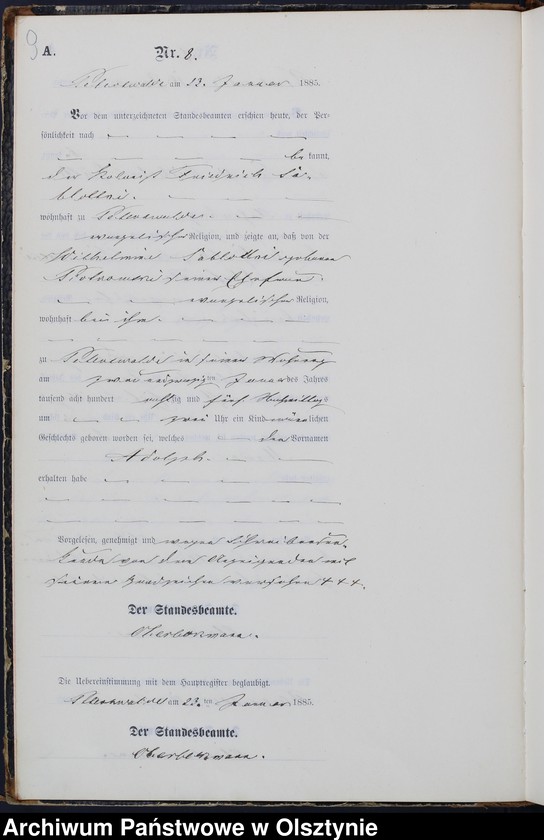 9
A. Nr. 8.
am 23. Januar 1885.
Vor dem unterzeichneten Standesbeamten erschien heute, der Per-
sönlichkeit nach
be kannt,
der Kolonist Friedrich Sa-
blottni.
wohnhaft zu
evangelischer Religion, und zeigte an, daß von der
Wilhelmine Sablottni geborene
seiner Ehefrau
evangelischer Religion,
wohnhaft bei ihm
zu in seiner Wohnung
am zwei und zwanzigten Januar des Jahres
tausend acht hundert achtzig und fünf Nachmittags
um zwei Uhr ein Kind männlichen
Geschlechts geboren worden sei, welches den Vornamen
Adolph.
erhalten habe
Vorgelesen, genehmigt und wegen Schreibensun-
kunde von dem Anzeigenden mit
seinem Handzeichen versehen + + +.
Der Standesbeamte.
Die Uebereinstimmung mit dem Hauptregister beglaubigt.
am 23. ten Januar 1885.
Der Standesbeamte.
Archiwum Państwowe w Olsztynie